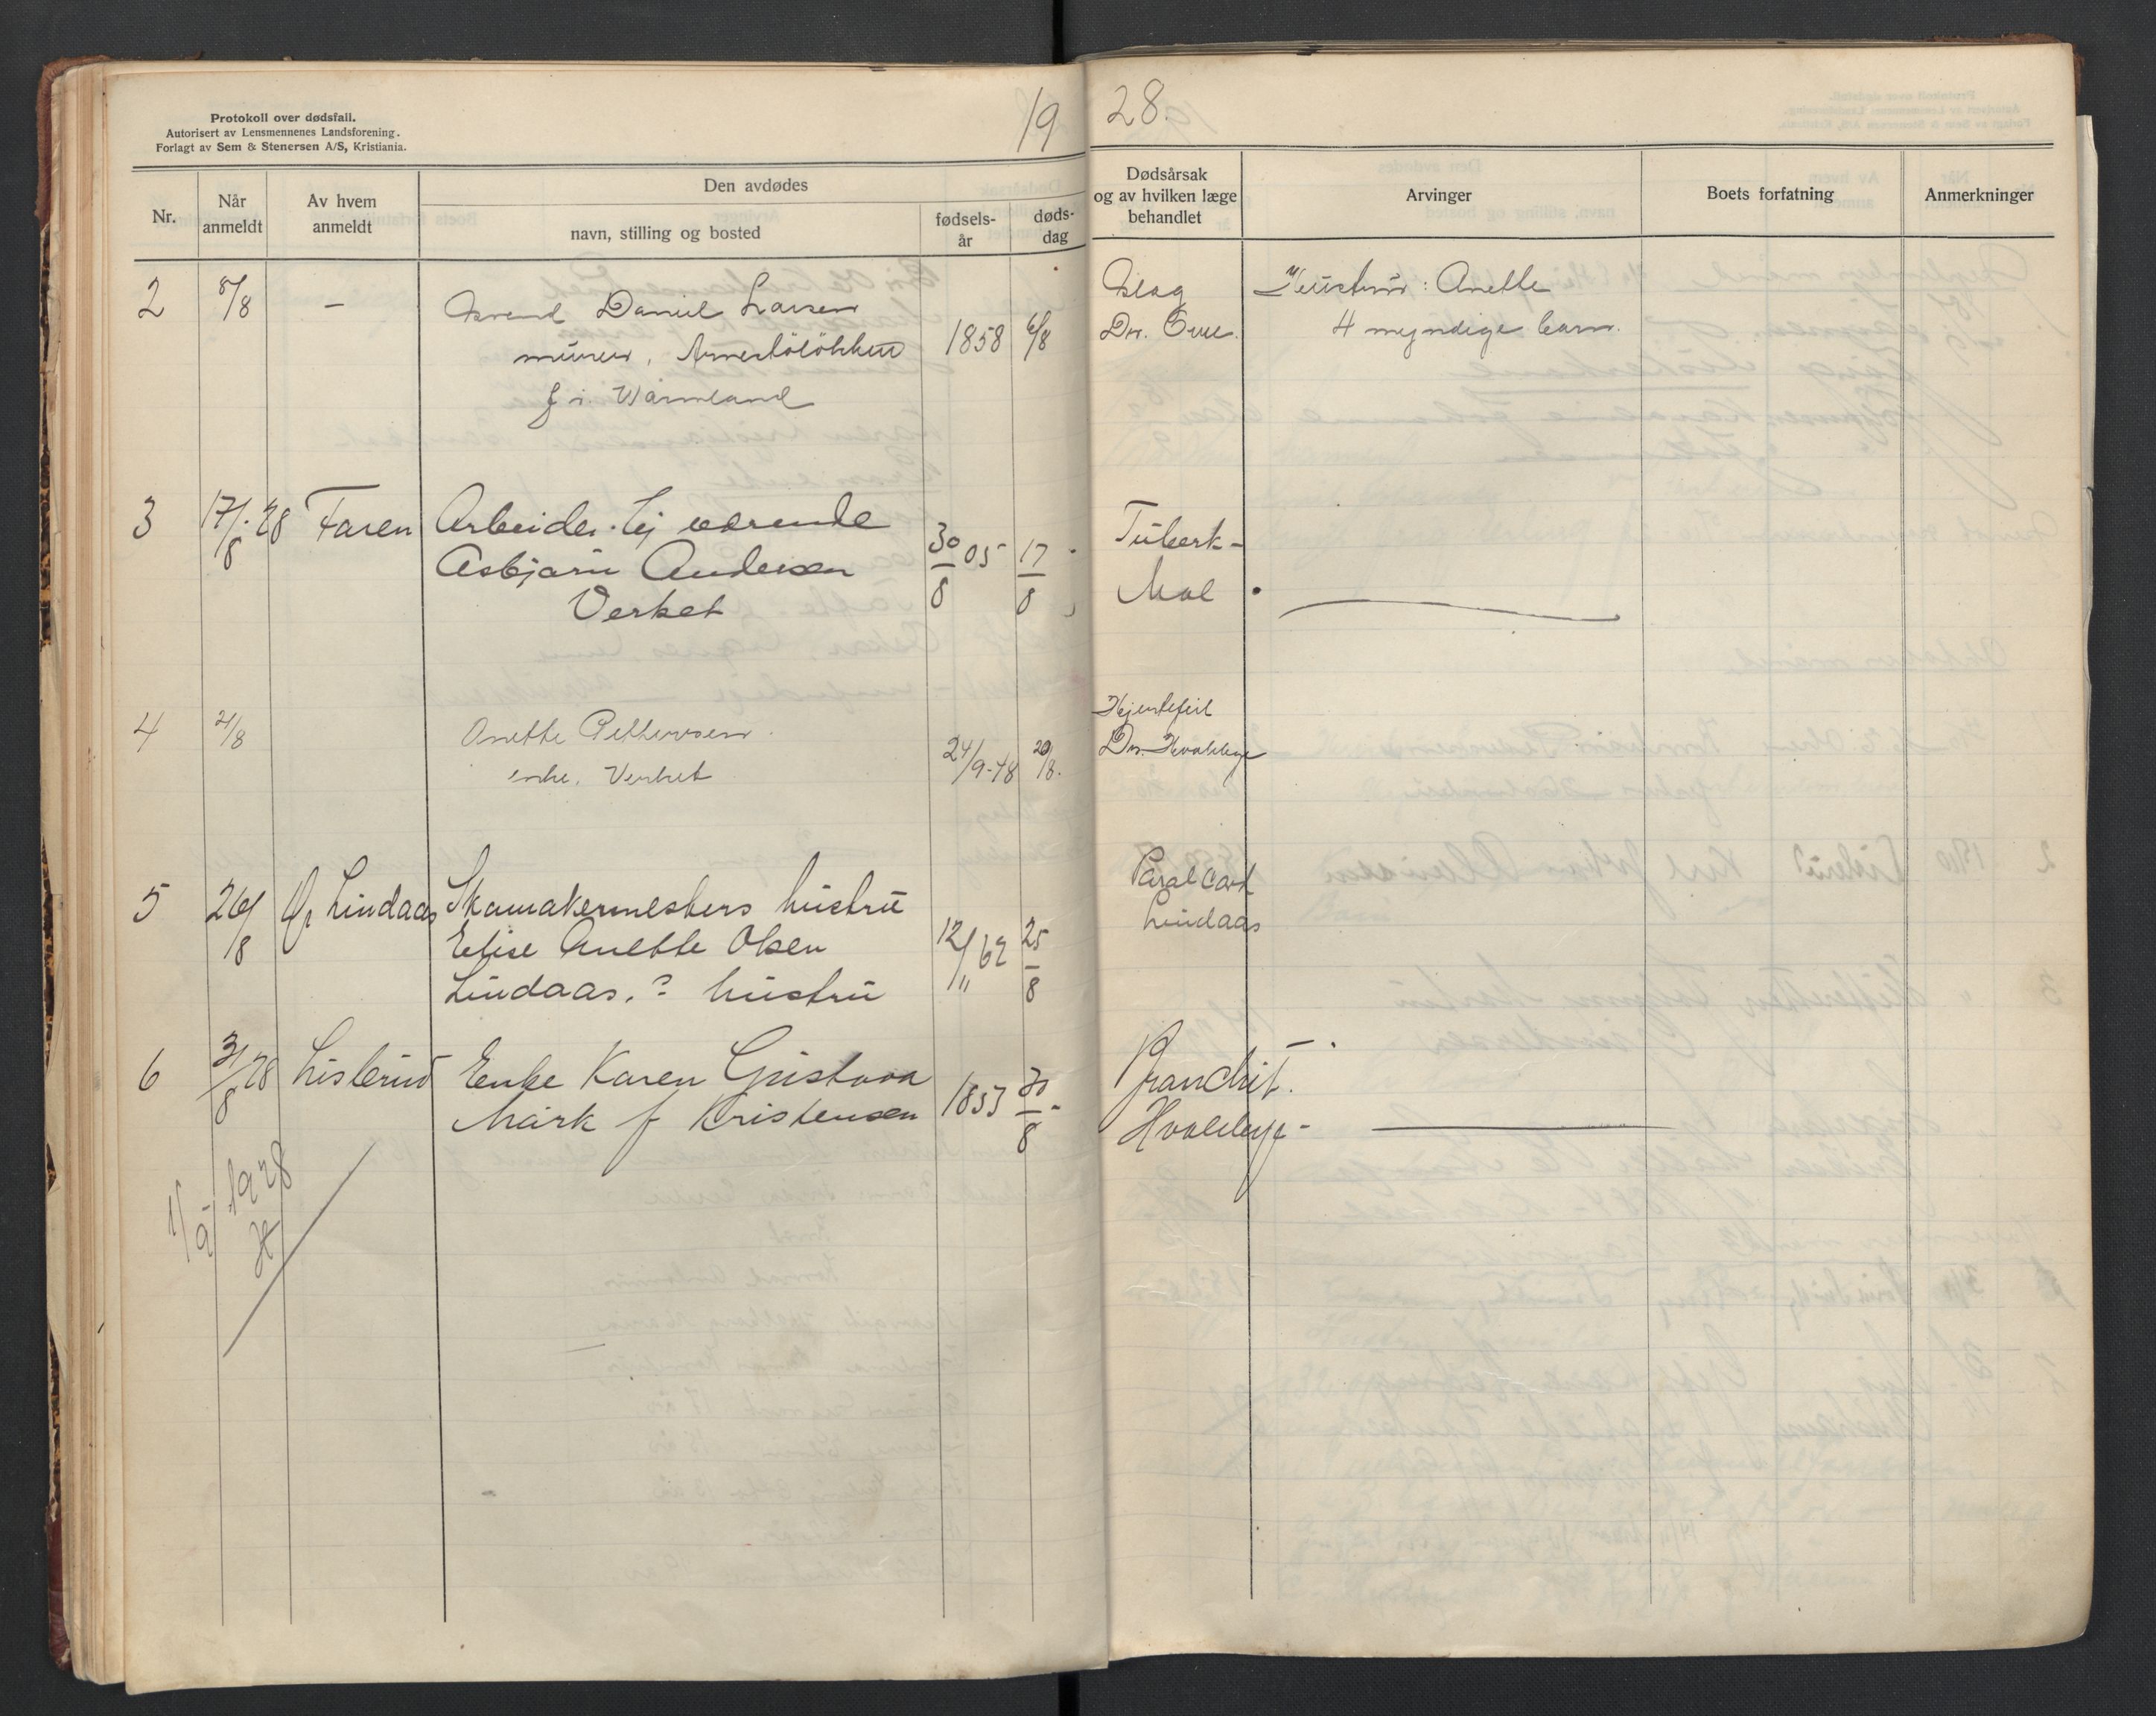 Protokoll over dødsfall.
Autorisert av Lensmennenes Landsforening.
Forlagt av Sem & Stenersen A/S, Kristiania.
19 28.
Nr.
Når anmeldt
Av hvem anmeldt
Den avdødes
navn, stilling og bosted
fødsels-år
døds-dag
Dødsårsak og av hvilken læge behandlet
Arvinger
Boets forfatning
Anmerkninger
2 8/8 — Daniel Larsen
murer, 1858 6/8
f i Värmland
Slag Hustru: Anette
Dr. 4 myndige barn.
3 17/8 28 Faren Arbeider
Asbjørn Andersen 30/8 05 17/8
Verket
Tuberk-
4 21/8 Anette Pettersen
enke. Verket 24/9-48 20/8.
Hjertefeil
Dr.
5 26/8 Lindaas Skomakermesters hustru
Elise Anette Olsen 12/11 62 25/8
Lindaas. hustru
Paral card
Lindaas
6 31/8 28 Listerud Enke Karen Gustava
Mørk f Kristensen 1853 30/8
Hvalbye
1/9 1928